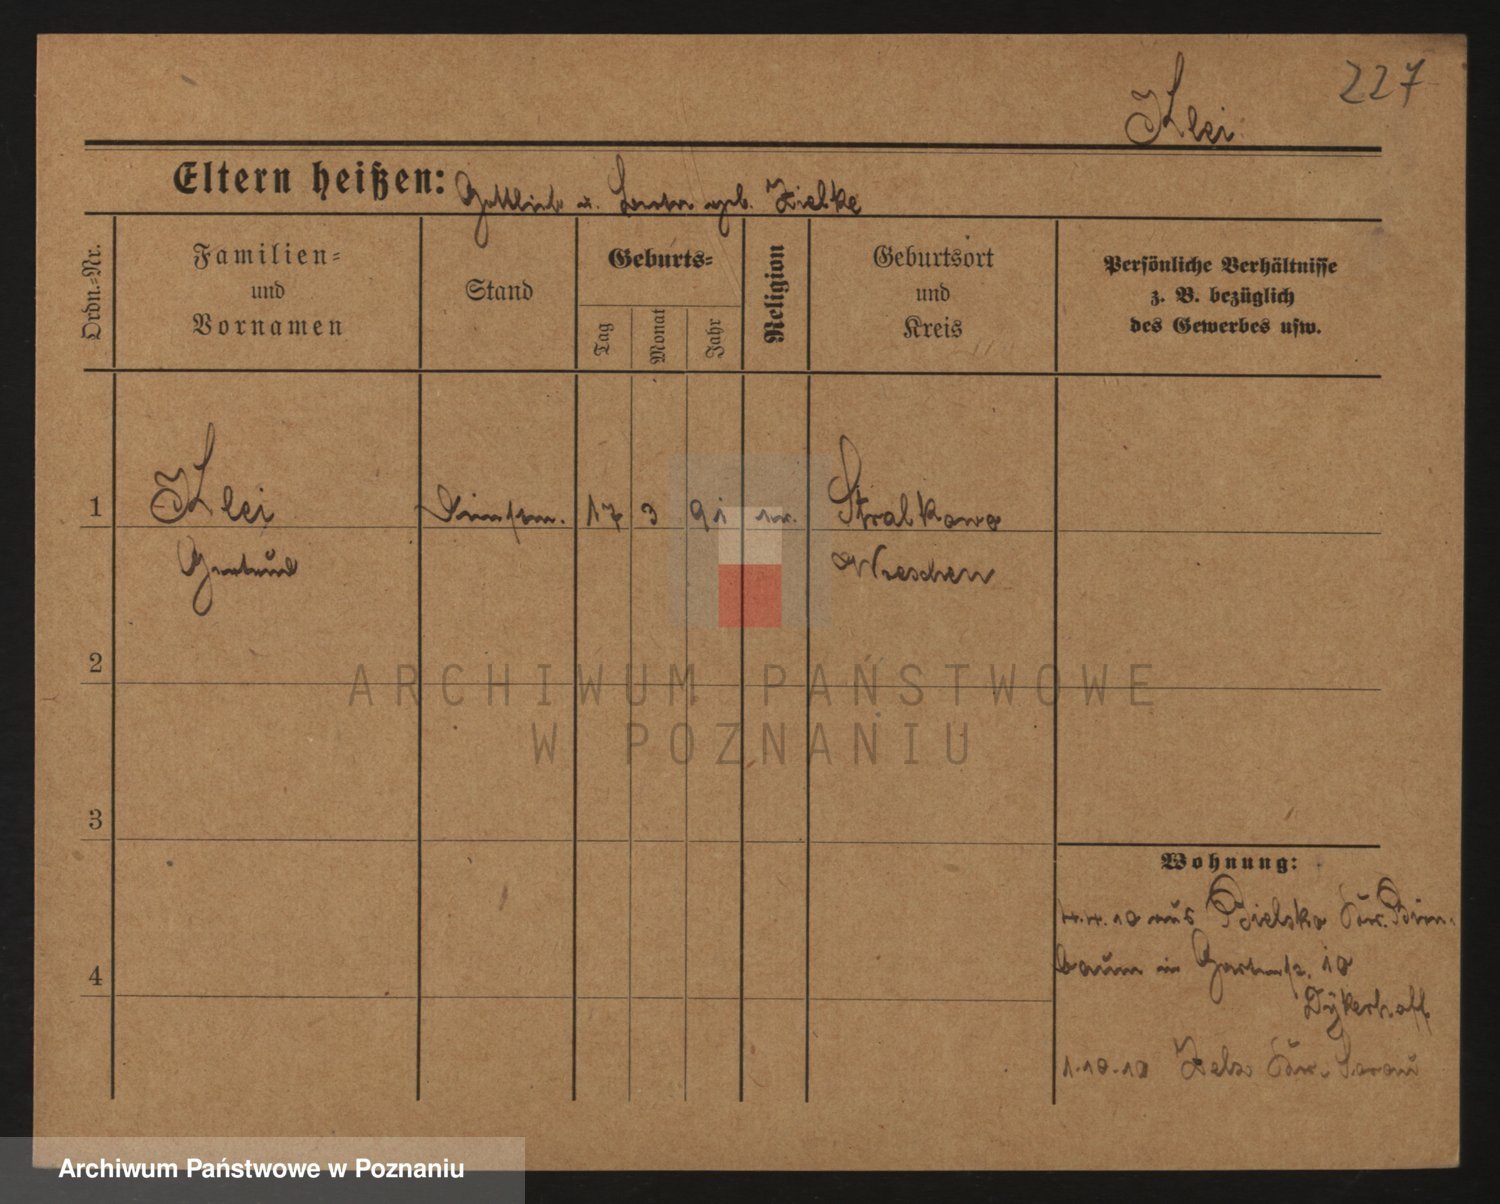 227
Klei
Eltern heißen: Gottlieb u. geb. Zielke
Ordn.-Nr.
Familien=
und
Vornamen
Stand
Geburts=
Tag
Monat
Jahr
Religion
Geburtsort
und
Kreis
Persönliche Verhältnisse
z. B. bezüglich
des Gewerbes usw.
1
Klei
17 3 91
Stralkowo
Gertrud
Wreschen
2
3
4
Wohnung:
10 aus Bielsko Kr. Birn-
baum in Gartenstr. 10
Dykerhoff
1.10.10 Kr. Sorau
ARCHIWUM PAŃSTWOWE
W POZNANIU
Archiwum Państwowe w Poznaniu